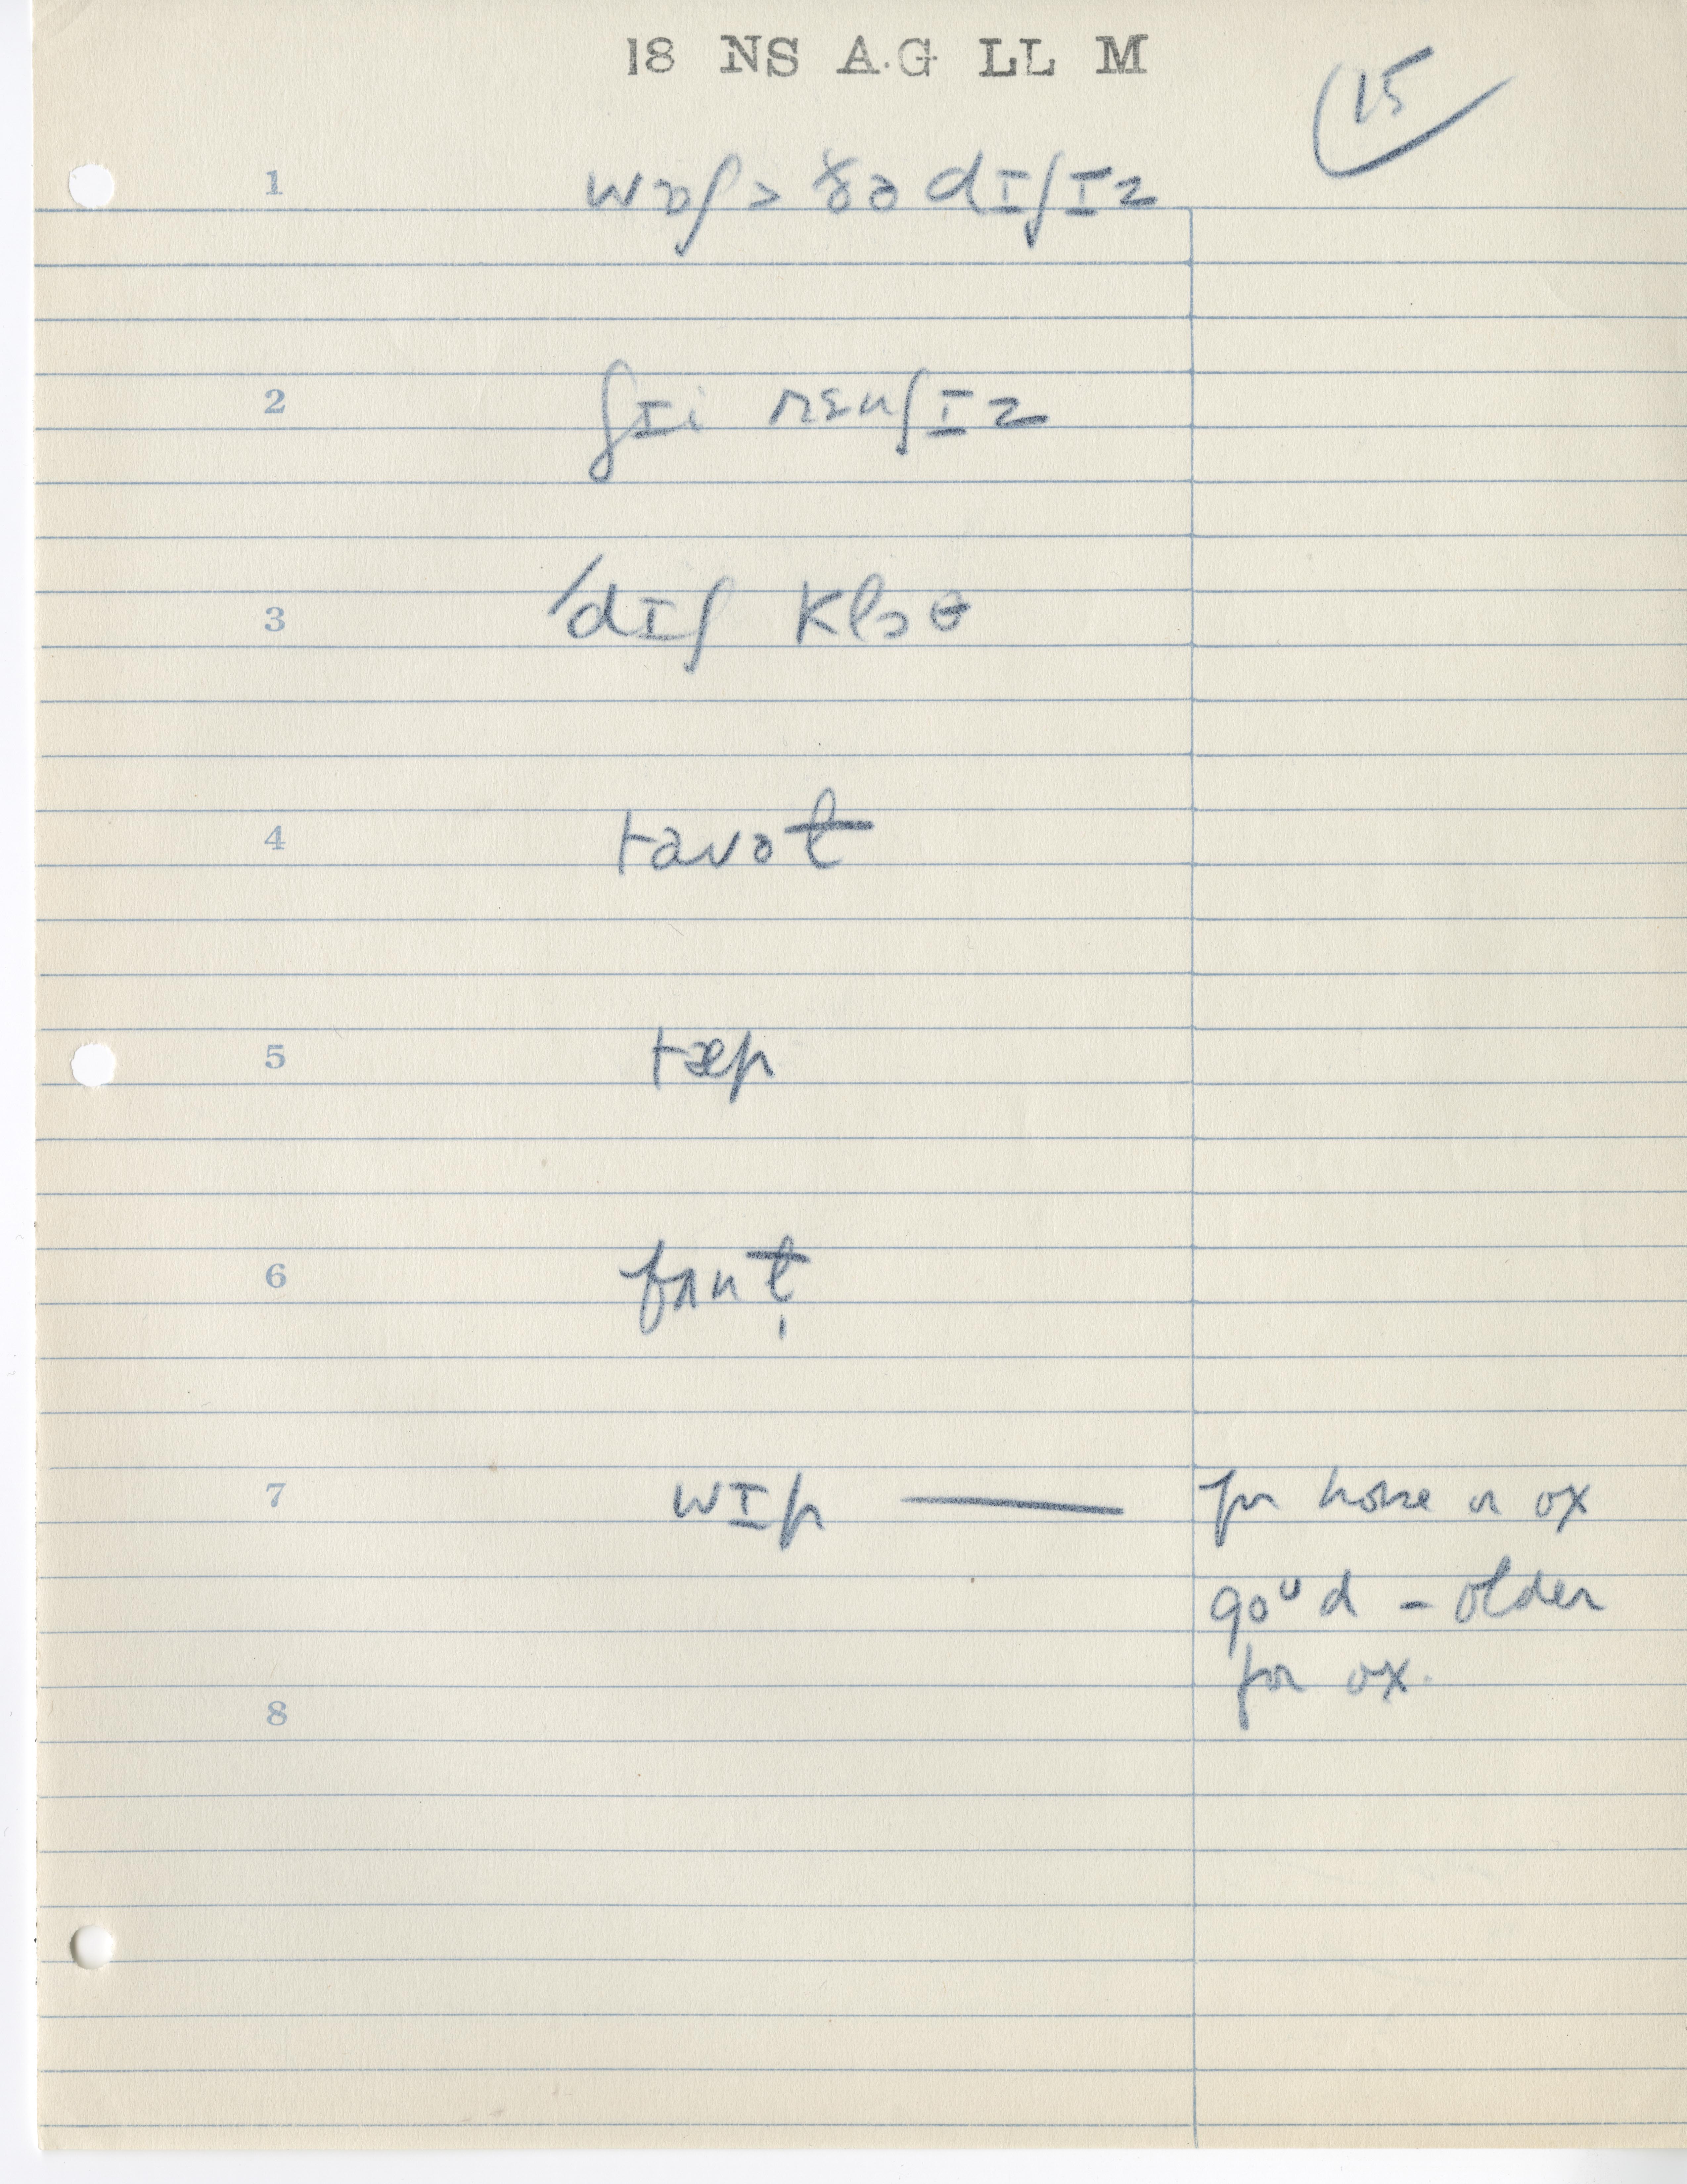 18 NS A.G LL M
15
1 wɒʃ > ðə dɪʃɪz
2 ʃɪi rɛnʃɪz
3 /dɪʃ klɔθ
4 tavət
5 tæp
6 fant
7 wɪp — for horse or ox
goᵁd - older
for ox.
8